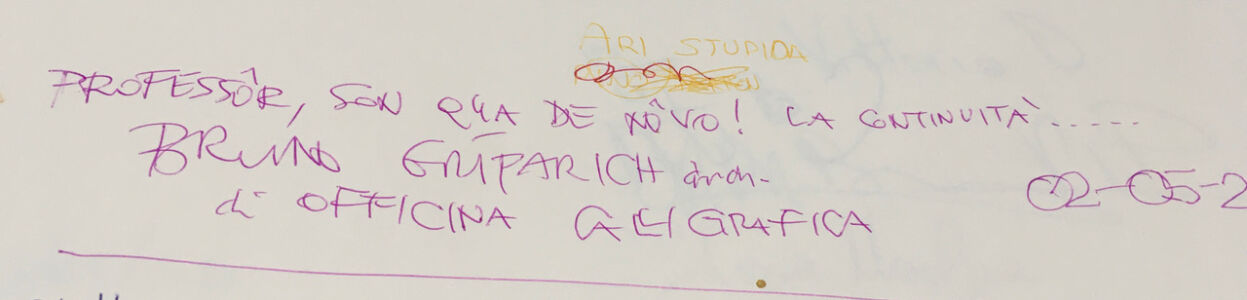 ARI STUPIDA
PROFESSÔR, SON QUA DE NÔVO! LA CONTINUITÀ.....
BRUNO GASPARICH arch.
di OFFICINA CALLIGRAFICA
02-05-2